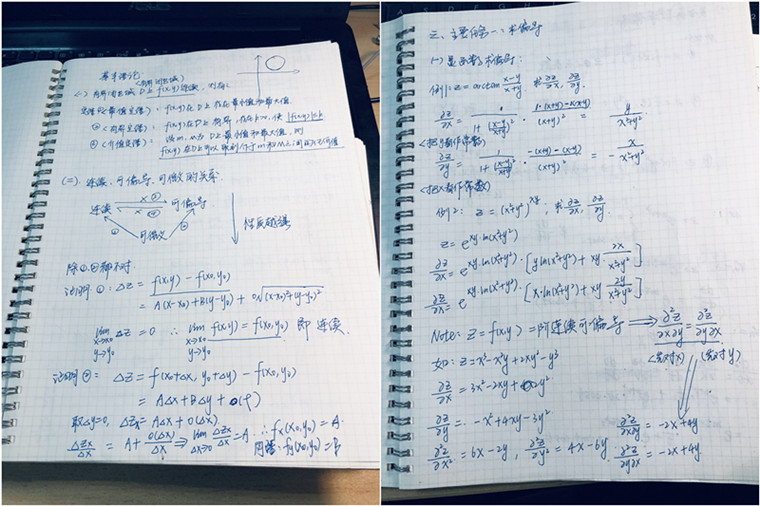 (一) 有界闭区域 D上 f(x,y)连续, 则有:
f(x,y)在D上 存在最小值和最大值.
|f(x,y)|≤k
(二). 连续、可偏导、可微的关系.
连续 可偏导
可微
除①、②都不对.
证明①: ΔZ = f(x,y) - f(x0,y0)
= A(x-x0) + B(y-y0) + 0√(x-x0)²+(y-y0)²
lim x→x0 y→y0 ΔZ = 0 ∴ lim x→x0 y→y0 f(x,y) = f(x0,y0) 即 连续.
证明②: ΔZ = f(x0+Δx, y0+Δy) - f(x0,y0)
= AΔx + BΔy + o(ρ)
取Δy=0, ΔZx = AΔx + o(Δx)
ΔZx/Δx = A + o(Δx)/Δx ⇒ lim Δx→0 ΔZx/Δx = A. ∴ fx(x0,y0) = A.
同理: fy(x0,y0) = B
(一) 显函数求偏导:
例1: z = arctan x-y/x+y 求 ∂z/∂x, ∂z/∂y.
∂z/∂x = 1/1+(x-y/x+y)² · 1·(x+y)-(x-y)/(x+y)² = y/x²+y²
<把y看作常数>
∂z/∂y = 1/1+(x-y/x+y)² · -(x+y)-(x-y)/(x+y)² = - x/x²+y²
<把x看作常数>
例2: z = (x²+y²)^xy, 求 ∂z/∂x, ∂z/∂y
z = e^xy·ln(x²+y²)
∂z/∂x = e^xy·ln(x²+y²) · [y·ln(x²+y²) + xy · 2x/x²+y²]
∂z/∂x = e^xy·ln(x²+y²) · [x·ln(x²+y²) + xy · 2y/x²+y²]
Note: z = f(x,y) 二阶连续可偏导 ⇒ ∂²z/∂x∂y = ∂²z/∂y∂x
<先对x> <先对y>
如: z = x³ - x²y + 2xy² - y³
∂z/∂x = 3x² - 2xy + 2y².
∂z/∂y = -x² + 4xy - 3y². ∂²z/∂x∂y = -2x + 4y
∂²z/∂x² = 6x - 2y, ∂²z/∂y² = 4x - 6y. ∂²z/∂y∂x = -2x + 4y.